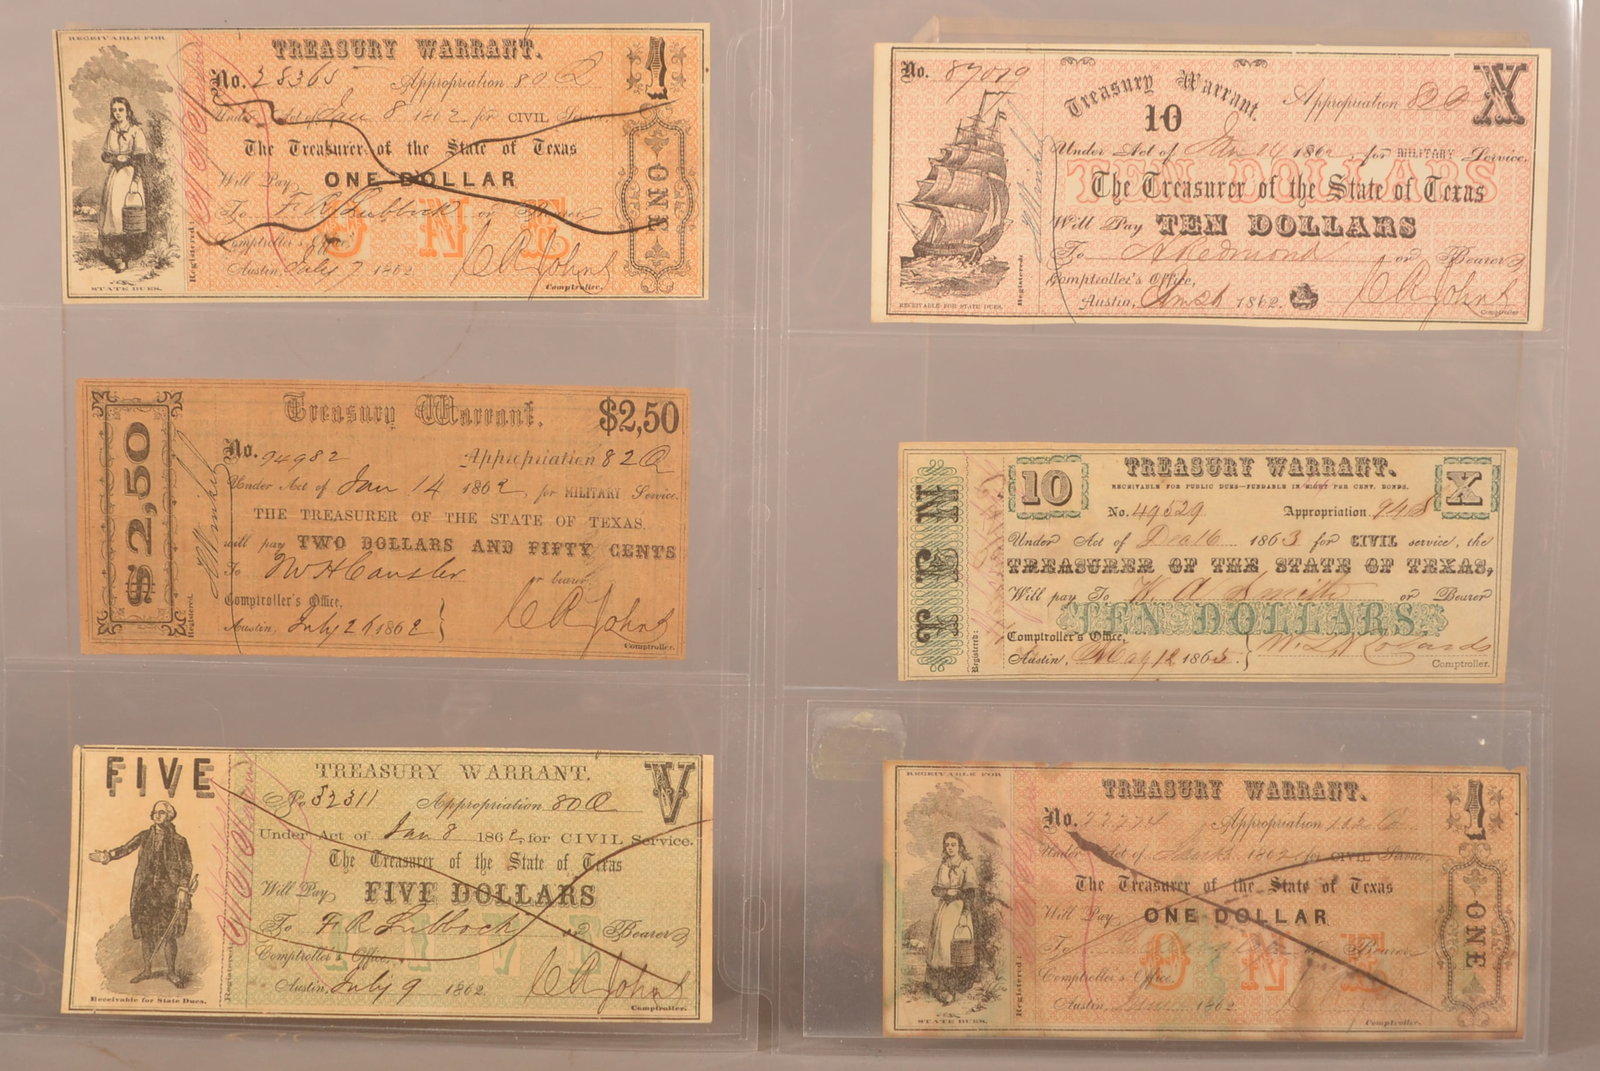 RECEIVABLE FOR
TREASURY WARRANT.
1
No. 28365 Appropriation 80 Q
Under Act of Jan 8 1862 for CIVIL Service
The Treasurer of the State of Texas
Will Pay ONE DOLLAR
To F R Lubbock or Bearer
ONE
Comptroller's Office,
Austin, July 7 1862 C R Johns
Comptroller.
Registered:
STATE DUES.
ONE
$2,50
Treasury Warrant. $2,50
No. 94982 Appropriation 82 Q
Under Act of Jan 14 1862, for MILITARY Service.
THE TREASURER OF THE STATE OF TEXAS,
will pay TWO DOLLARS AND FIFTY CENTS
To or bearer.
Comptroller's Office,
Austin, July 21 1862 C R Johns
Comptroller.
Registered.
FIVE
TREASURY WARRANT. V
No 32311 Appropriation 80 Q
Under Act of Jan 8 1862, for CIVIL Service.
The Treasurer of the State of Texas
Will Pay FIVE DOLLARS
To F R Lubbock or Bearer
FIVE
Comptroller's Office,
Austin, July 9 1862. C R Johns
Comptroller.
Registered:
Receivable for State Dues.
No. 87019 Treasury Warrant. Appropriation 82 Q X
10
Under Act of Jan 1862 for MILITARY Service.
TEN DOLLARS
The Treasurer of the State of Texas
Will Pay TEN DOLLARS
To A Redmond or Bearer
Comptroller's Office,
Austin, 1862. C R Johns
Comptroller
Registered:
RECEIVABLE FOR STATE DUES.
TEN
10 TREASURY WARRANT. X
RECEIVABLE FOR PUBLIC DUES—FUNDABLE IN EIGHT PER CENT. BONDS.
No. 49529 Appropriation. 94
Under Act of Dec 16 1863 for CIVIL service, the
TREASURER OF THE STATE OF TEXAS,
Will pay To W. A Smith or Bearer
TEN DOLLARS
Comptroller's Office,
Austin, May 12 1865.
Comptroller.
Registered:
RECEIVABLE FOR
TREASURY WARRANT.
1
No. Appropriation
Under Act of 1862 for CIVIL Service
The Treasurer of the State of Texas
Will Pay ONE DOLLAR
To or Bearer
ONE
Comptroller's Office
Austin 1862
Comptroller.
Registered:
STATE DUES.
ONE